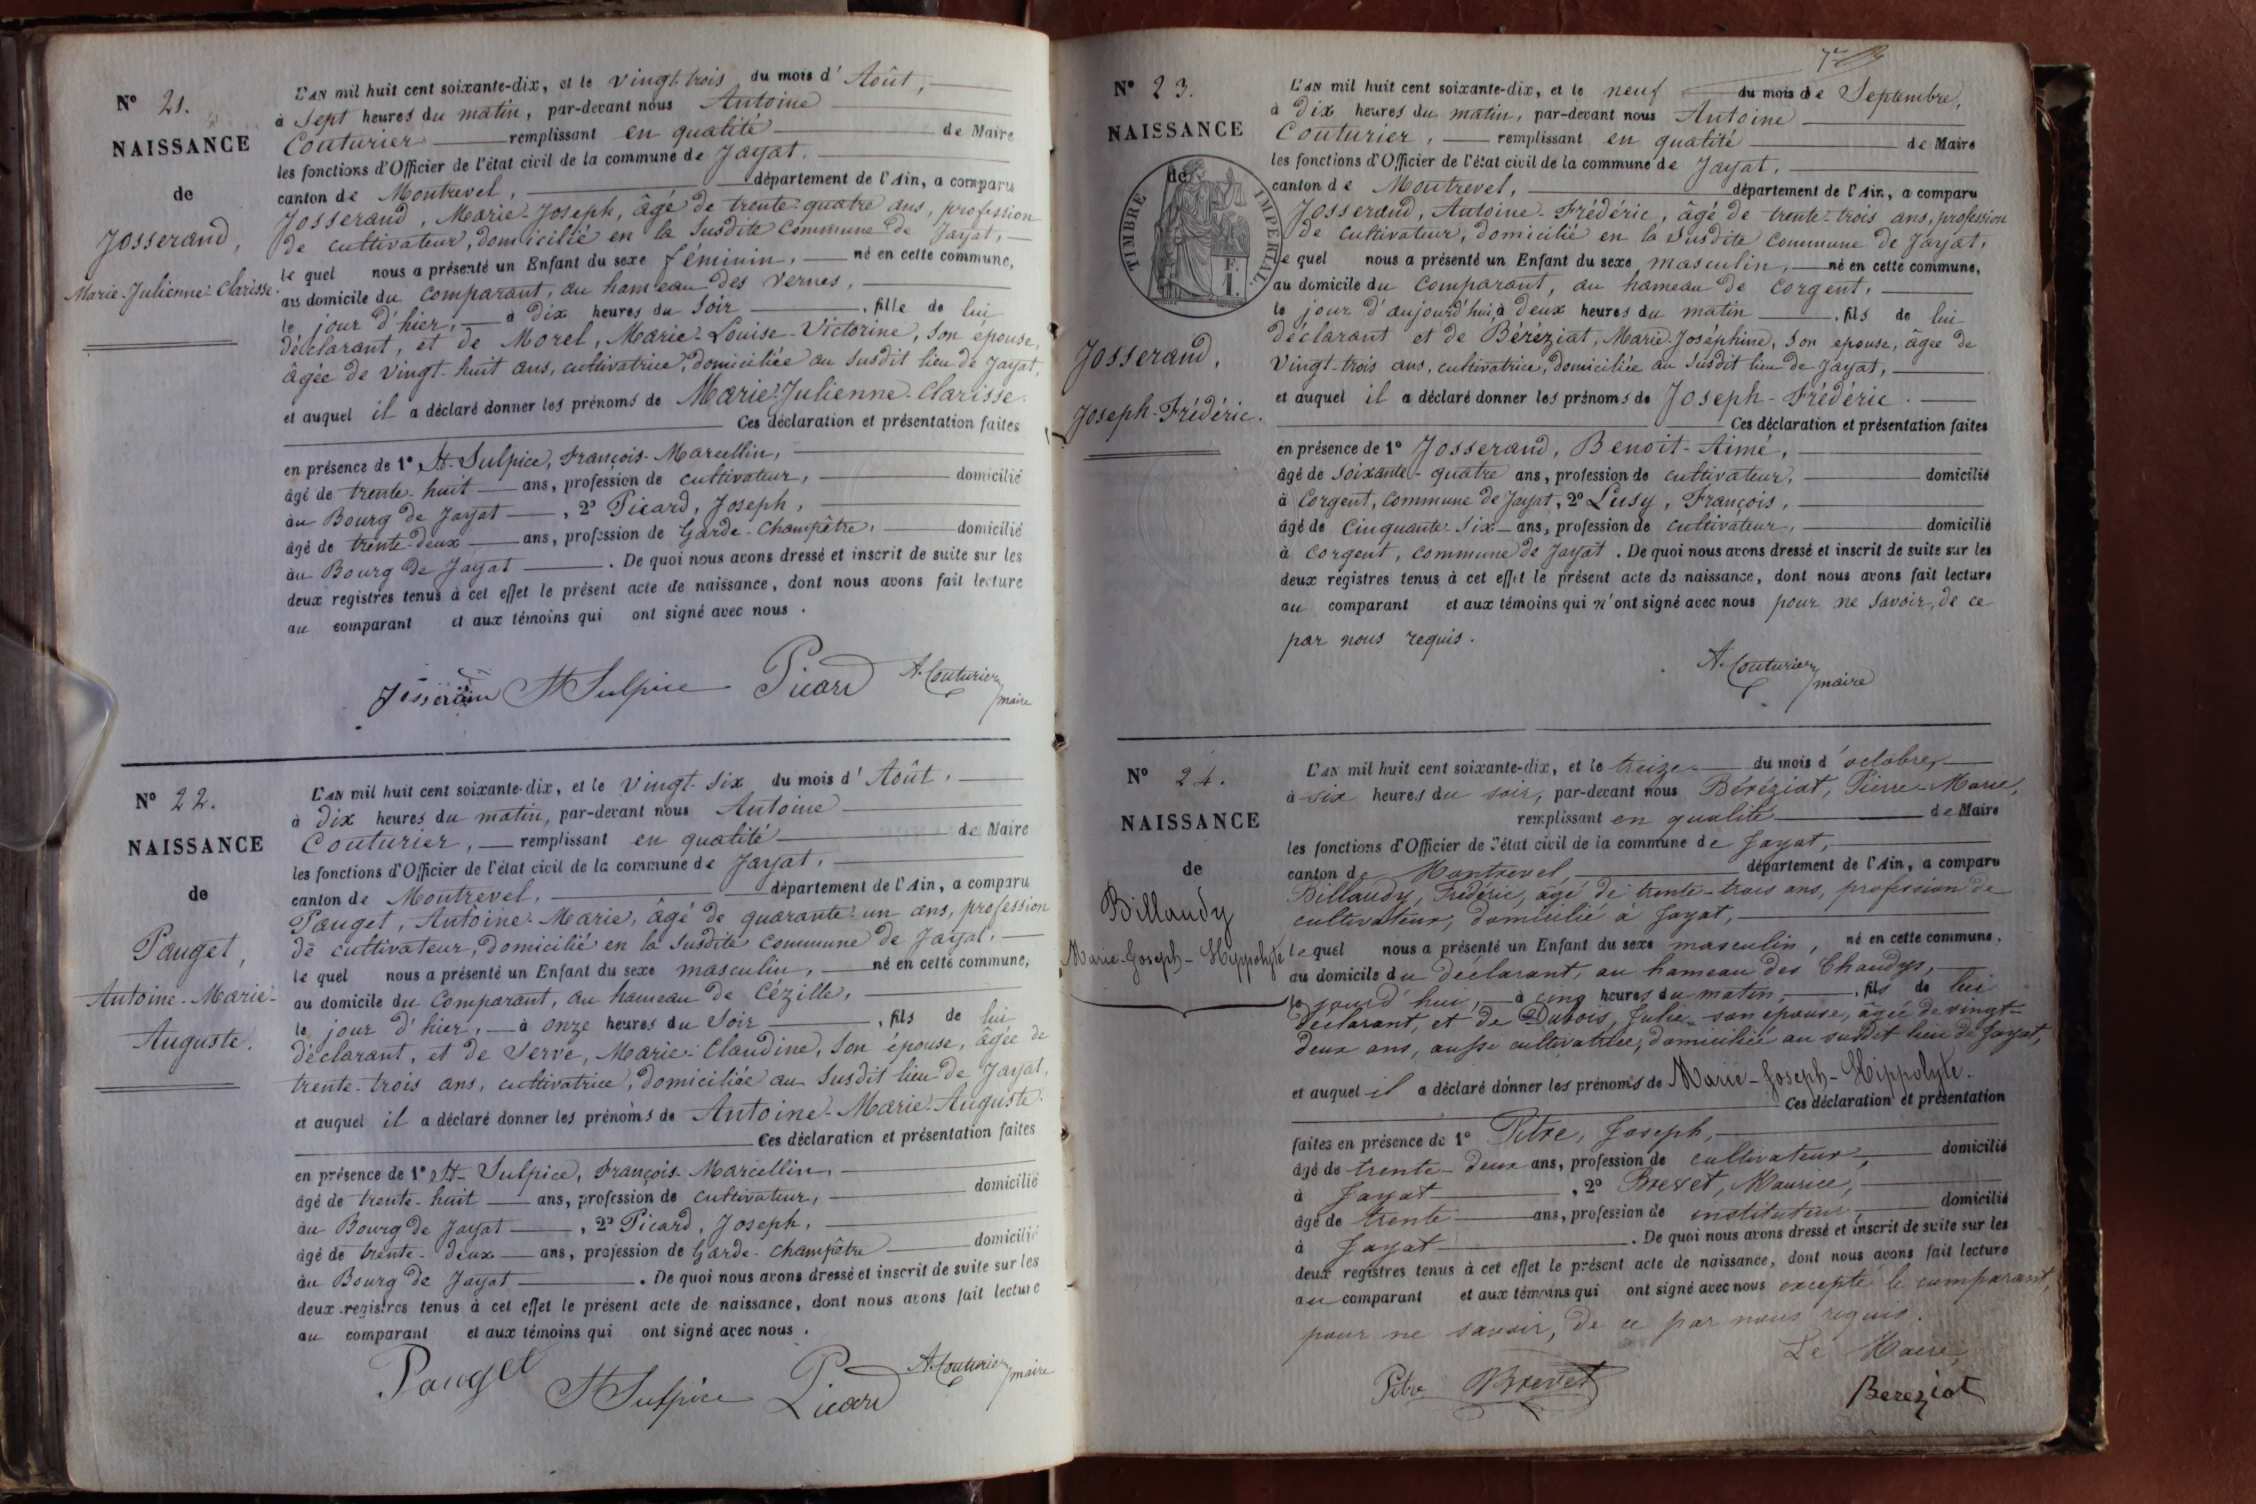 N° 21.
NAISSANCE
de
Josserand,
Marie-Julienne-Clarisse.
L'AN mil huit cent soixante-dix, et le vingt-trois du mois d'Août,
à sept heures du matin, par-devant nous Antoine
Couturier remplissant en qualité de Maire
les fonctions d'Officier de l'état civil de la commune de Jayat.
canton de Montrevel, département de l'Ain, a comparu
Josserand, Marie-Joseph, âgé de trente-quatre ans, profession
de cultivateur, domicilié en la susdite commune de Jayat,
le quel nous a présenté un Enfant du sexe féminin, né en cette commune,
au domicile du comparant, au hameau des Vernes,
le jour d'hier, à dix heures du soir, fille de lui
déclarant, et de Morel, Marie-Louise-Victorine, son épouse,
âgée de vingt-huit ans, cultivatrice, domiciliée au susdit lieu de Jayat,
et auquel il a déclaré donner les prénoms de Marie-Julienne-Clarisse.
Ces déclaration et présentation faites
en présence de 1° St-Sulpice, François-Marcellin,
âgé de trente-huit ans, profession de cultivateur, domicilié
au Bourg de Jayat, 2° Picard, Joseph,
âgé de trente-deux ans, profession de Garde-Champêtre, domicilié
au Bourg de Jayat. De quoi nous avons dressé et inscrit de suite sur les
deux registres tenus à cet effet le présent acte de naissance, dont nous avons fait lecture
au comparant et aux témoins qui ont signé avec nous.
St Sulpice Picard A. Couturier
maire
N° 22.
NAISSANCE
de
Pauget,
Antoine-Marie-
Auguste.
L'AN mil huit cent soixante-dix, et le vingt-six du mois d'Août,
à dix heures du matin, par-devant nous Antoine
Couturier, remplissant en qualité de Maire
les fonctions d'Officier de l'état civil de la commune de Jayat,
canton de Montrevel, département de l'Ain, a comparu
Pauget, Antoine-Marie, âgé de quarante-un ans, profession
de cultivateur, domicilié en la susdite commune de Jayat,
le quel nous a présenté un Enfant du sexe masculin, né en cette commune,
au domicile du comparant, au hameau de Cézille,
le jour d'hier, à onze heures du soir, fils de lui
déclarant, et de Serve, Marie-Claudine, son épouse, âgée de
trente-trois ans, cultivatrice, domiciliée au susdit lieu de Jayat,
et auquel il a déclaré donner les prénoms de Antoine-Marie-Auguste.
Ces déclaration et présentation faites
en présence de 1° St-Sulpice, François-Marcellin,
âgé de trente-huit ans, profession de cultivateur, domicilié
au Bourg de Jayat, 2° Picard, Joseph,
âgé de trente-deux ans, profession de Garde-champêtre domicilié
au Bourg de Jayat. De quoi nous avons dressé et inscrit de suite sur les
deux registres tenus à cet effet le présent acte de naissance, dont nous avons fait lecture
au comparant et aux témoins qui ont signé avec nous.
Pauget St Sulpice Picard A. Couturier
maire
N° 23.
NAISSANCE
de
TIMBRE IMPÉRIAL.
Josserand,
Joseph-Frédéric.
L'AN mil huit cent soixante-dix, et le neuf du mois de Septembre,
à dix heures du matin, par-devant nous Antoine
Couturier, remplissant en qualité de Maire
les fonctions d'Officier de l'état civil de la commune de Jayat,
canton de Montrevel, département de l'Ain, a comparu
Josserand, Antoine-Frédéric, âgé de trente-trois ans, profession
de cultivateur, domicilié en la susdite commune de Jayat,
le quel nous a présenté un Enfant du sexe masculin, né en cette commune,
au domicile du comparant, au hameau de Corgent,
le jour d'aujourd'hui, à deux heures du matin, fils de lui
déclarant et de Béréziat, Marie-Joséphine, son épouse, âgée de
vingt-trois ans, cultivatrice, domiciliée au susdit lieu de Jayat,
et auquel il a déclaré donner les prénoms de Joseph-Frédéric.
Ces déclaration et présentation faites
en présence de 1° Josserand, Benoit-Aimé,
âgé de soixante-quatre ans, profession de cultivateur, domicilié
à Corgent, commune de Jayat, 2° Lusy, François,
âgé de cinquante-six ans, profession de cultivateur, domicilié
à Corgent, commune de Jayat. De quoi nous avons dressé et inscrit de suite sur les
deux registres tenus à cet effet le présent acte de naissance, dont nous avons fait lecture
au comparant et aux témoins qui n'ont signé avec nous pour ne savoir, de ce
par nous requis.
A. Couturier
maire
N° 24.
NAISSANCE
de
Billaudy
Marie-Joseph-Hippolyte
L'AN mil huit cent soixante-dix, et le treize du mois d'octobre,
à six heures du soir, par-devant nous Béréziat, Pierre-Marie,
remplissant en qualité de Maire
les fonctions d'Officier de l'état civil de la commune de Jayat,
canton de Montrevel, département de l'Ain, a comparu
Billaudy, Frédéric, âgé de trente-trois ans, profession de
cultivateur, domicilié à Jayat,
le quel nous a présenté un Enfant du sexe masculin, né en cette commune,
au domicile du déclarant, au hameau des Chaudys,
le jourd'hui, à cinq heures du matin, fils de lui
déclarant, et de Dubois, Julie, son épouse, âgée de vingt-
deux ans, aussi cultivatrice, domiciliée au susdit lieu de Jayat,
et auquel il a déclaré donner les prénoms de Marie-Joseph-Hippolyte.
Ces déclaration et présentation
faites en présence de 1° Pitre, Joseph,
âgé de trente-deux ans, profession de cultivateur, domicilié
à Jayat, 2° Brevet, Maurice,
âgé de trente ans, profession de instituteur, domicilié
à Jayat. De quoi nous avons dressé et inscrit de suite sur les
deux registres tenus à cet effet le présent acte de naissance, dont nous avons fait lecture
au comparant et aux témoins qui ont signé avec nous excepté le comparant,
pour ne savoir, de ce par nous requis.
Le Maire,
Pitre Brevet Bereziat